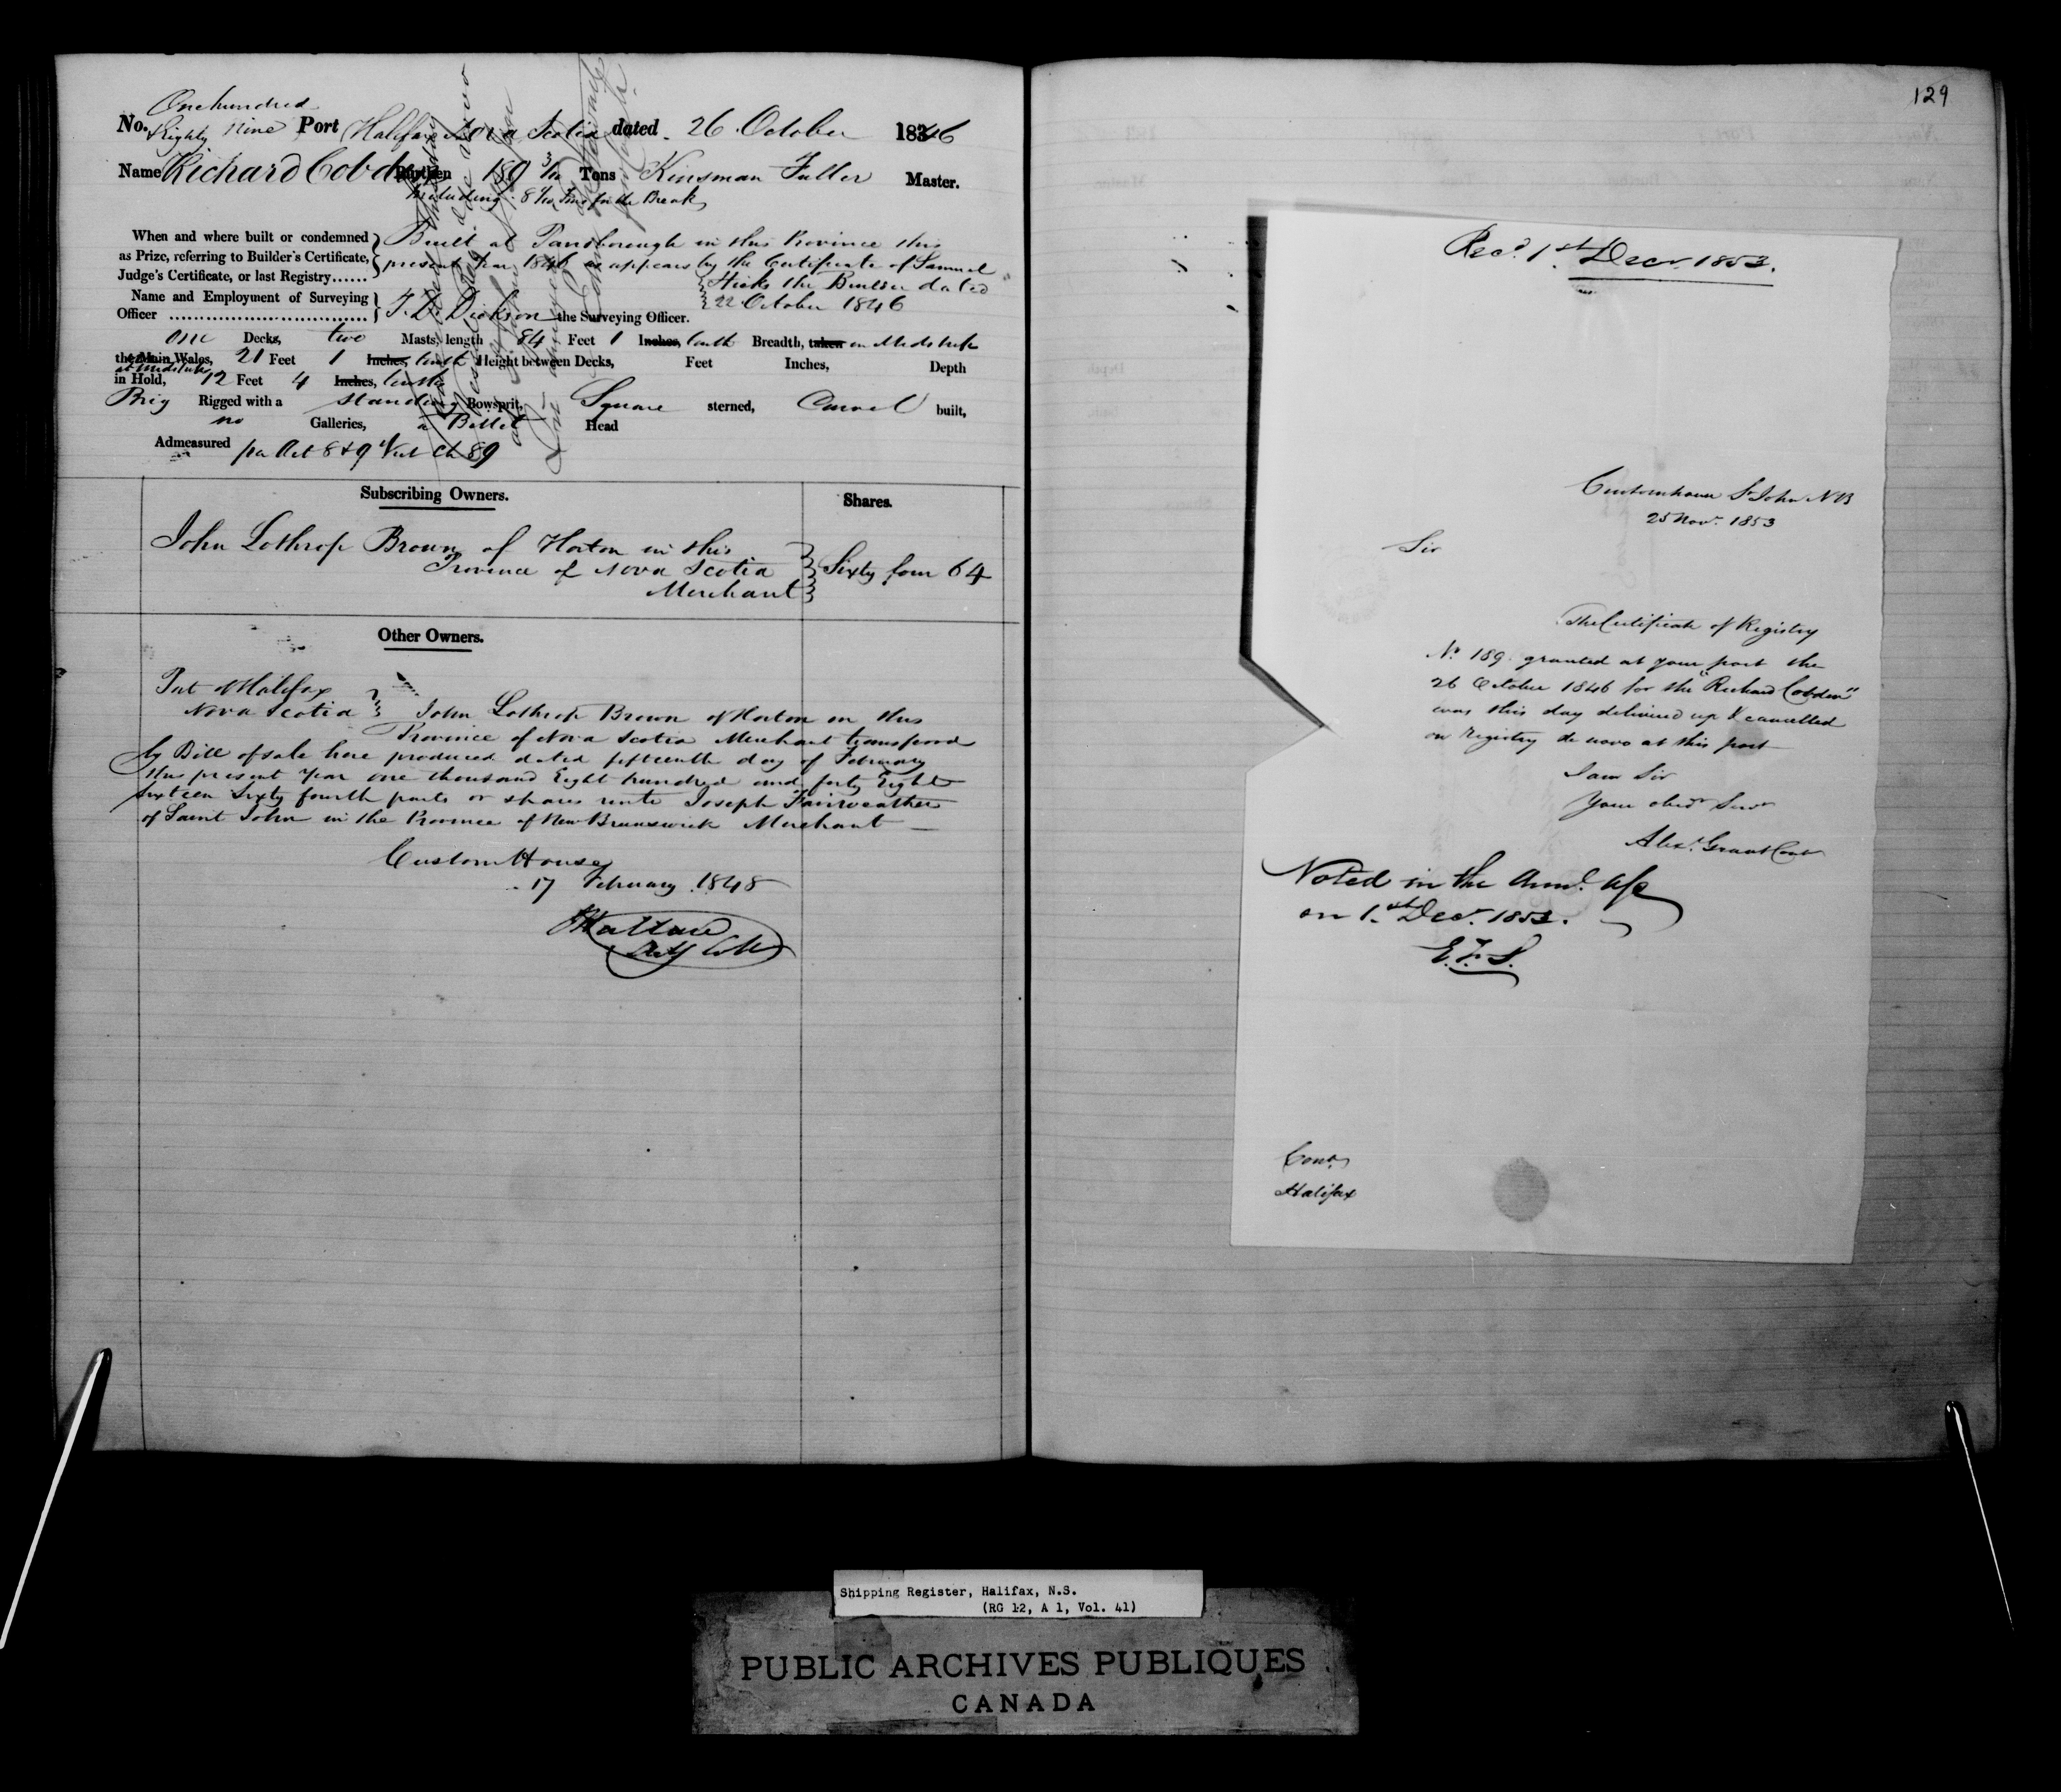 One hundred
No. Eighty Nine Port Halifax Nova Scotia dated 26 October 1846
Name Richard Cobden Burthen 189 3/10 Tons Kinsman Fuller Master.
Including 8 /10 Tons for the Break
When and where built or condemned as Prize, referring to Builder's Certificate, Judge's Certificate, or last Registry......
Built at Parrsborough in this Province this
present Year 1846 as appears by the Certificate of Samuel
Hicks the Builder dated
22 October 1846
Name and Employment of Surveying Officer
Dickson the Surveying Officer.
One Decks, two Masts, length 84 Feet 1 Inches, tenth Breadth, taken in Midships
the Main Wales, 21 Feet 1 Inches, tenth Height between Decks, Feet Inches, Depth
at Midships
in Hold, 12 Feet 4 Inches, tenths
Brig Rigged with a standing Bowsprit, Square sterned, Carvel built,
no Galleries, a Billet Head
Admeasured per Act 8 & 9 Vict Ch 89
Subscribing Owners. Shares.
John Lothrop Brown of Horton in this
Province of Nova Scotia
Merchant
Sixty four 64
Other Owners.
Port of Halifax
Nova Scotia
John Lothrop Brown of Horton in this
Province of Nova Scotia Merchant transferred
by Bill of sale here produced dated fifteenth day of February
this present Year one thousand Eight hundred and forty Eight
Sixteen Sixty fourth parts or shares unto Joseph Fairweather
of Saint John in the Province of New Brunswick Merchant
Custom House
17 February 1848
129
Recd. 1st Decr. 1853.
Customhouse St John NB
25 Novr. 1853
Sir
The Certificate of Registry
No 189 granted at your port the
26 October 1846 for the "Richard Cobden"
was this day delivered up & cancelled
on Registry de novo at this port
I am Sir
Your obedt Servt
Alexr. Grant Cont
Noted in the Annl. a/c
on 1st Decr. 1853.
E.F.S.
Contr
Halifax
Shipping Register, Halifax, N.S.
(RG 12, A 1, Vol. 41)
PUBLIC ARCHIVES PUBLIQUES
CANADA